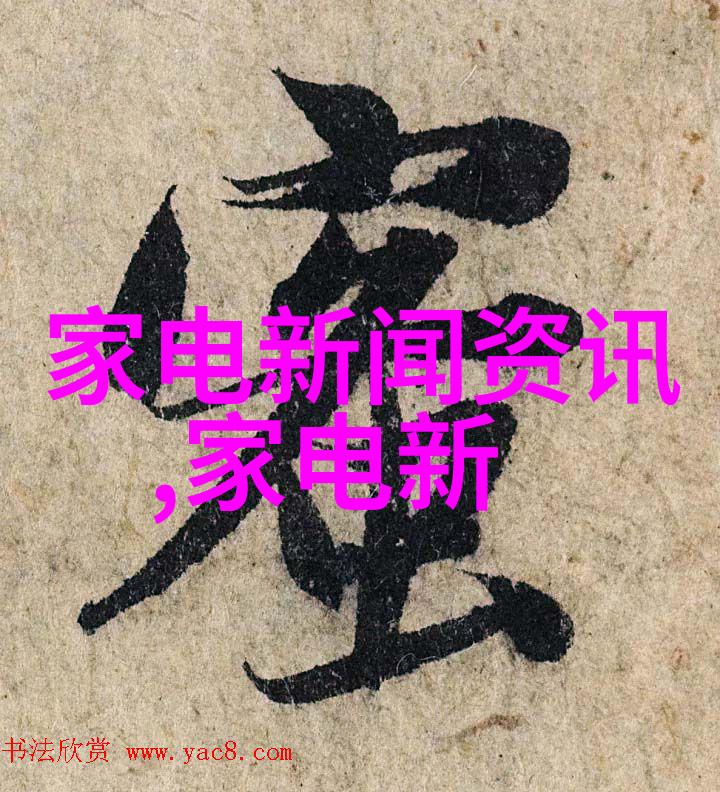 家电新闻资讯
,家电新
书法欣赏 www.yac8.com